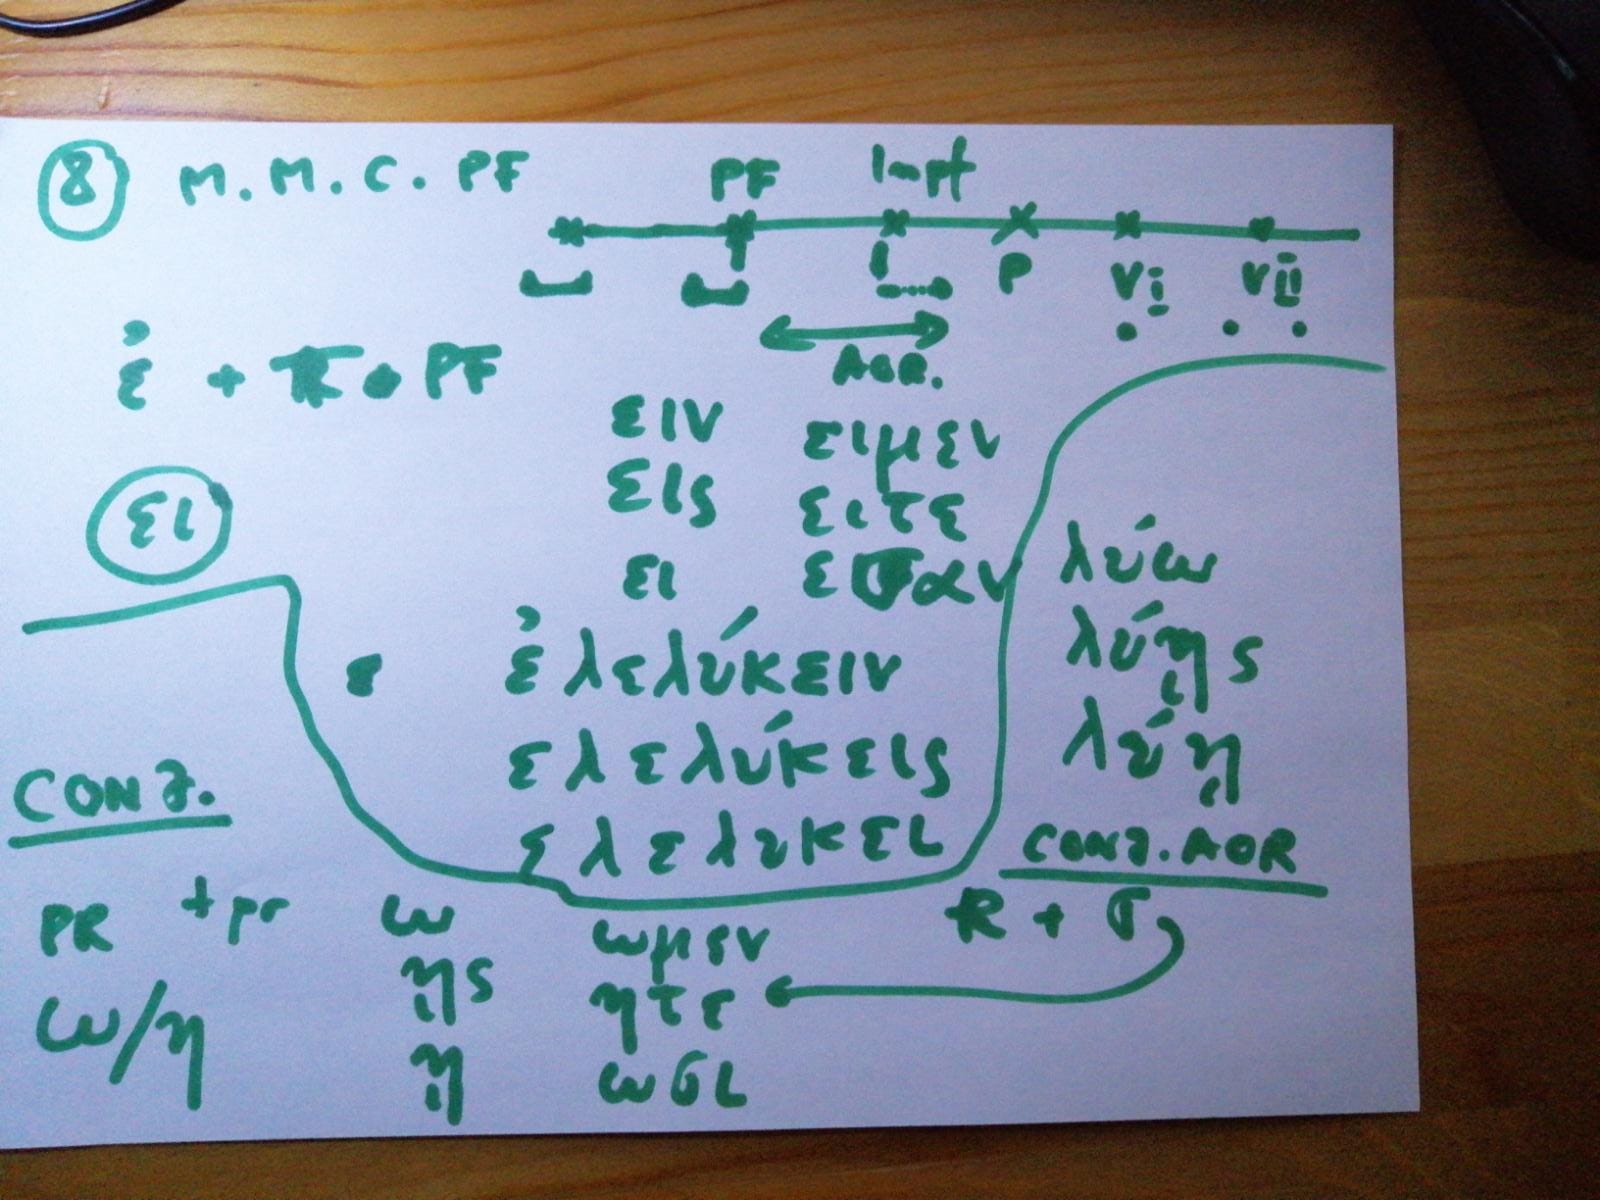 8 M.M.C. PF
PF Impf
P Vi Vii
AOR.
ἐ + R • PF
ειν ειμεν
εις ειτε
ει εσαν
ει
ἐλελύκειν
ελελύκεις
ελελυκει
λύω
λύῃς
λύῃ
CONJ.
PR + pr
ω/η
ω ωμεν
ῃς ητε
ῃ ωσι
CONJ. AOR
R + σ